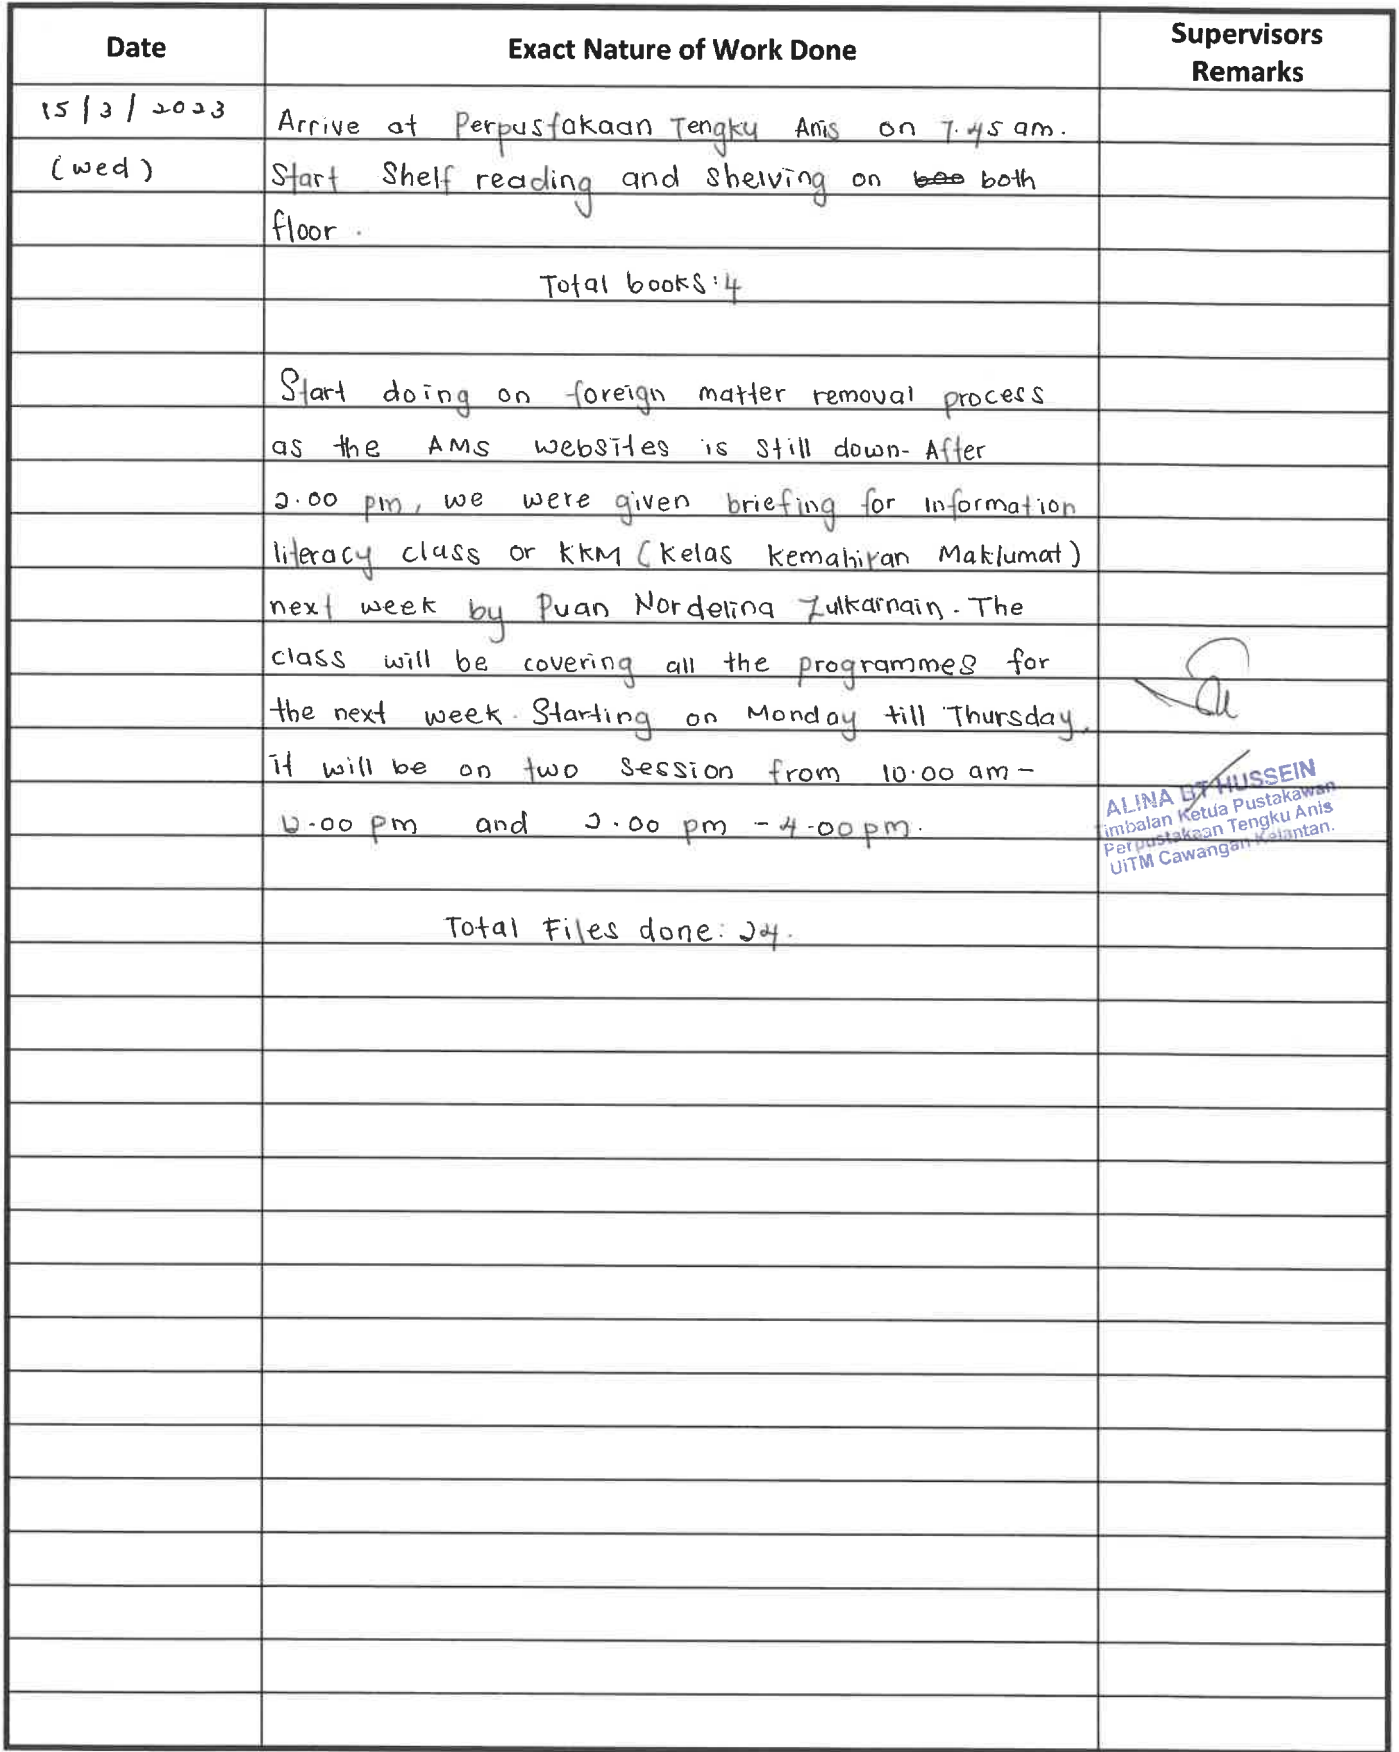 Date
Exact Nature of Work Done
Supervisors
Remarks
15/3/2023
(wed)
Arrive at Perpustakaan Tengku Anis on 7.45 am.
Start Shelf reading and shelving on both
floor.
Total books: 4
Start doing on foreign matter removal process
as the AMS websites is still down. After
2.00 pm, we were given briefing for information
literacy class or KKM (Kelas Kemahiran Maklumat)
next week by Puan Nordelina Zulkarnain. The
class will be covering all the programmes for
the next week. Starting on Monday till Thursday,
it will be on two session from 10.00 am -
12.00 pm and 2.00 pm - 4.00 pm.
Total Files done: 24.
ALINA BT HUSSEIN
imbalan Ketua Pustakawan
Perpustakaan Tengku Anis
UiTM Cawangan Kelantan.